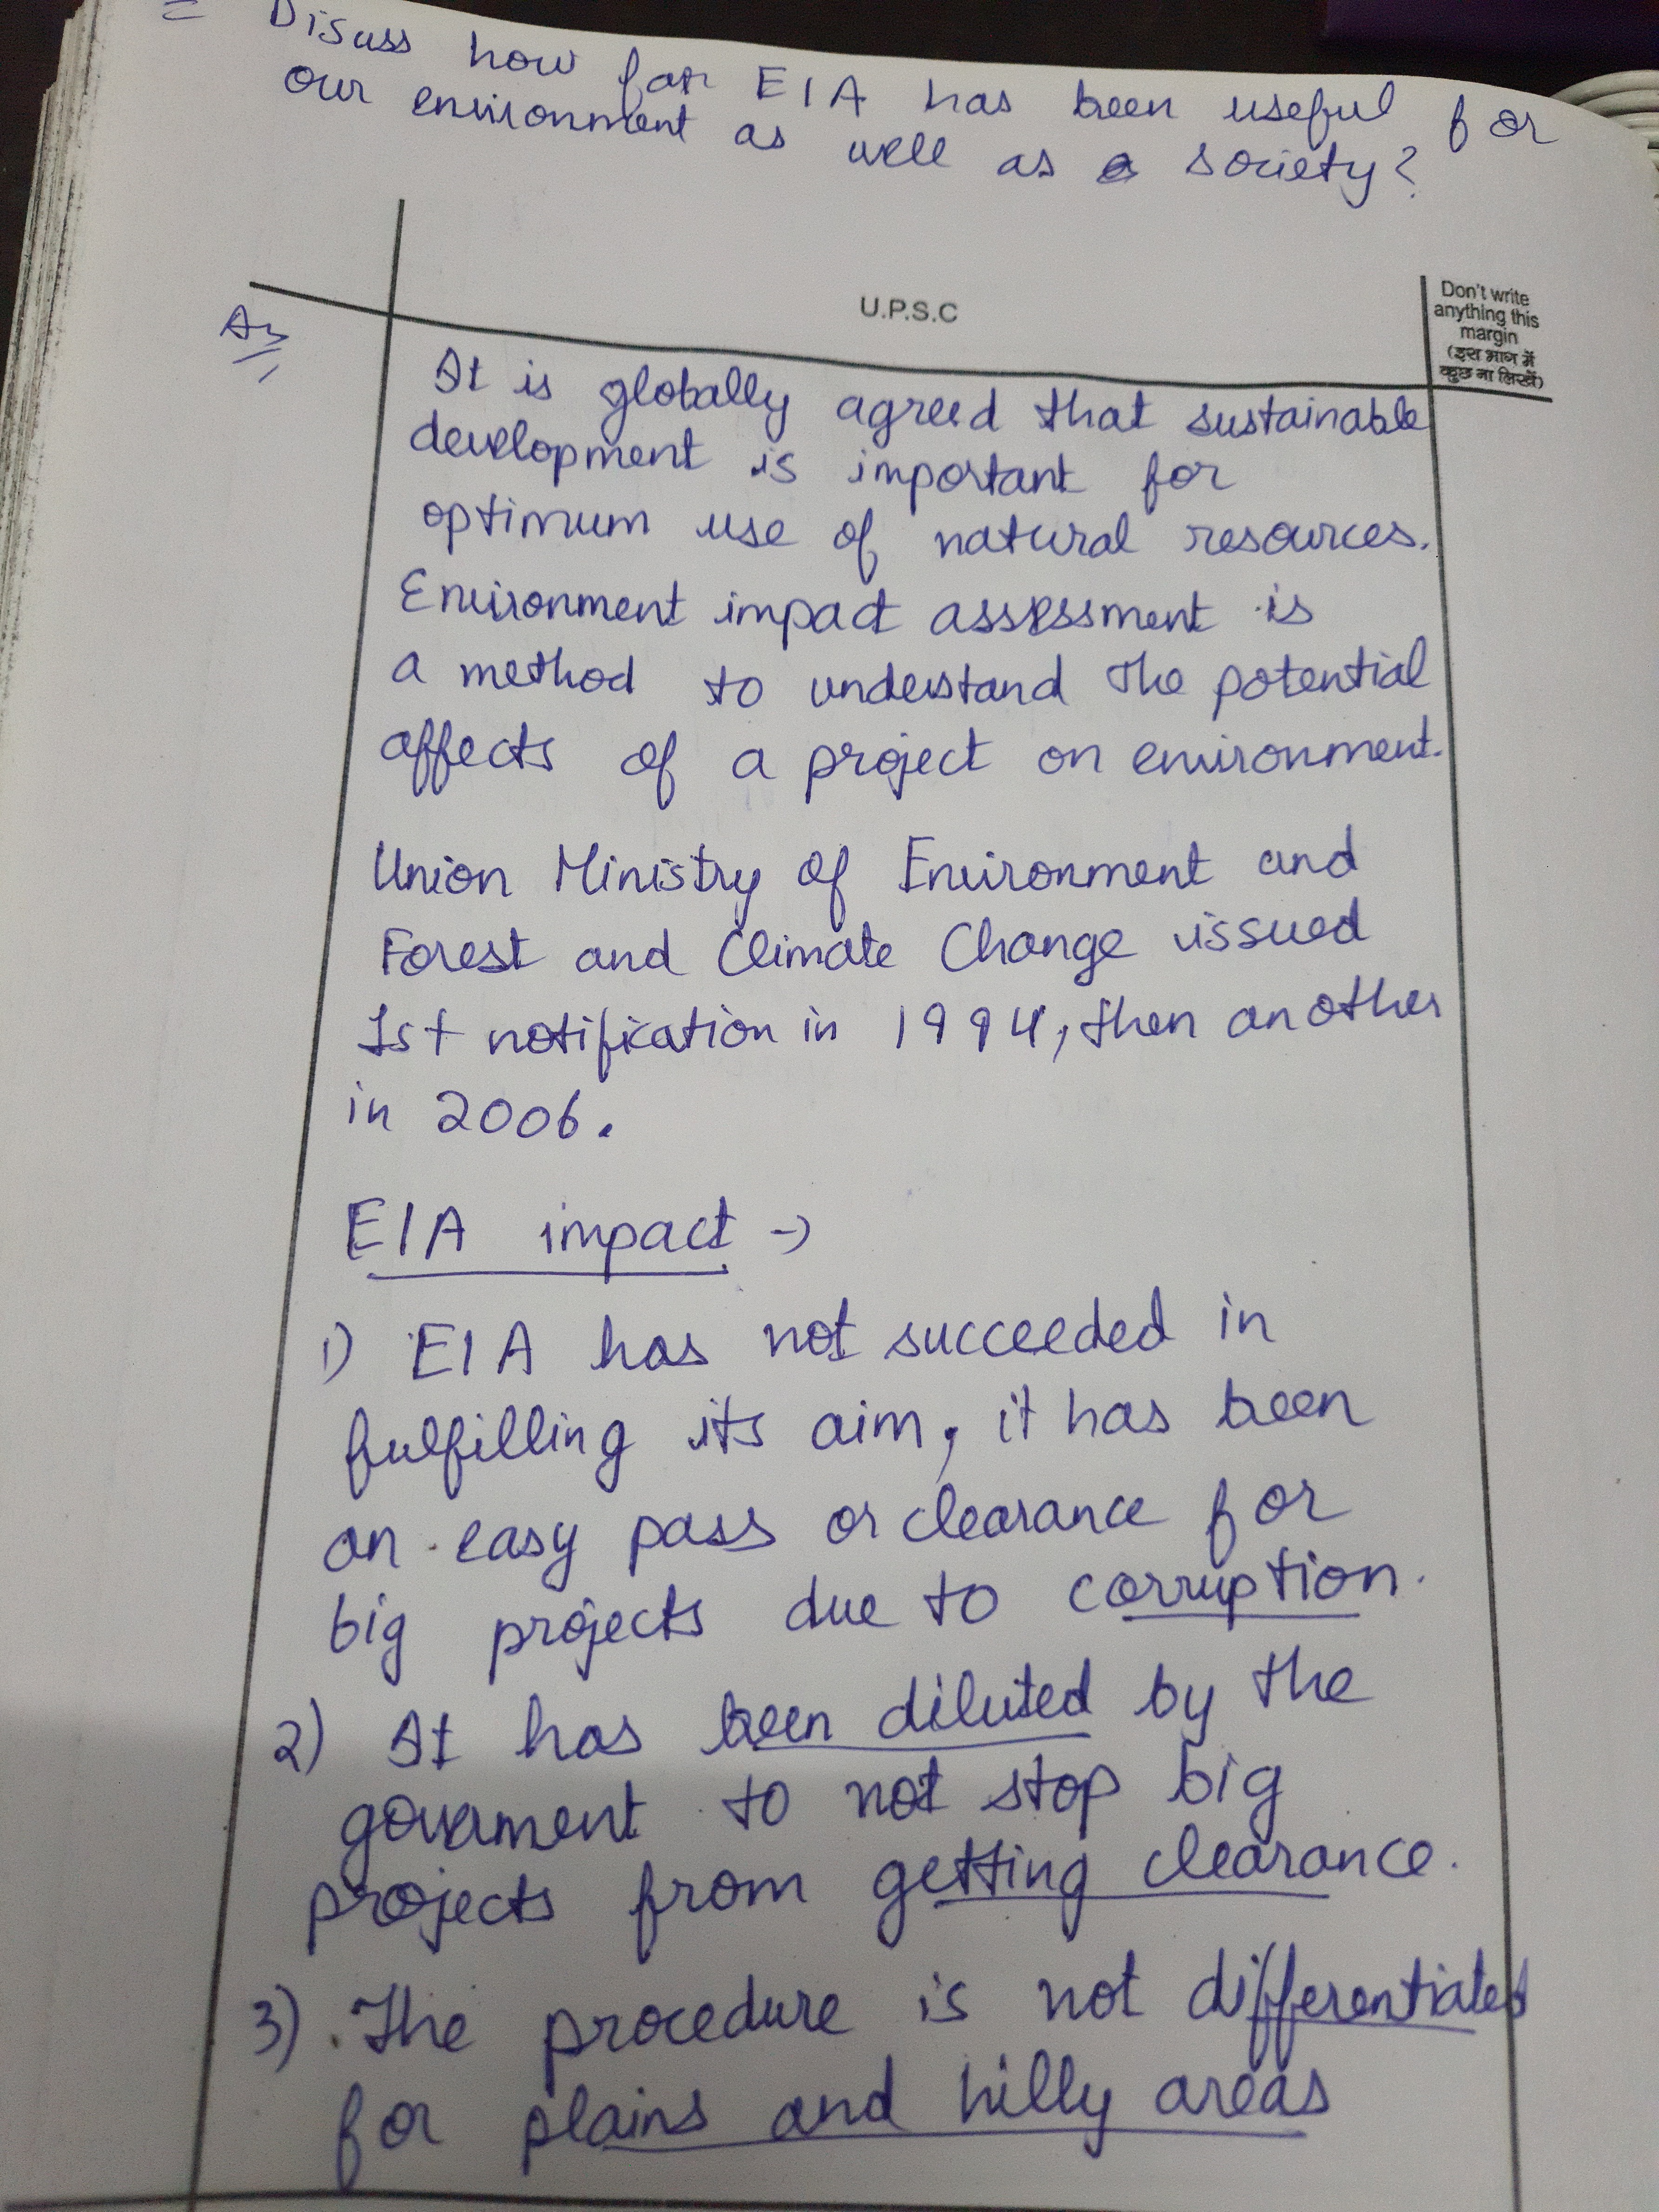 = Disuss how far EIA has been useful for
our environment as well as society?
U.P.S.C
Don't write
anything this
margin
(इस भाग में
कुछ ना लिखें)
It is globally agreed that sustainable
development is important for
optimum use of natural resources.
Environment impact assessment is
a method to understand the potential
affects of a project on environment.
Union Ministry of Environment and
Forest and Climate Change issued
1st notification in 1994, then another
in 2006.
EIA impact →
1) EIA has not succeeded in
fulfilling its aim, it has been
an easy pass or clearance for
big projects due to corruption.
2) It has been diluted by the
government to not stop big
projects from getting clearance.
3) The procedure is not differentiated
for plains and hilly areas